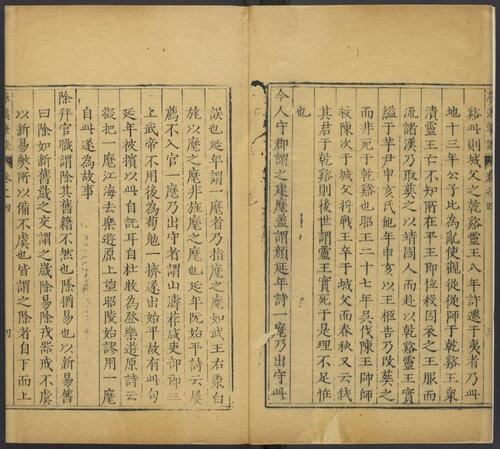 谿此則城父之乾谿靈王八年許遷于夷者乃此
地十三年公子比為亂使觀從從師于乾谿王衆
潰靈王亡不知所在平王即位殺囚衣之王服而
流諸漢乃取葬之以靖國人而赴以乾谿靈王實
縊于芋尹申亥氏他年申亥以王柩告乃改葬之
而非死于乾谿也昭王二十七年吳伐陳王帥師
救陳次于城父將戰王卒于城父而春秋又云弒
其君于乾谿則後世謂靈王實死于是理不足恠
也
今人守郡謂之建麾蓋謂顔延年詩一麾乃出守此
誤也延年謂一麾者乃指麾之麾如武王右秉白
旄以麾之麾非旌麾之麾也延年阮始平詩云屢
薦不入官一麾乃出守者謂山濤荐咸吏部郎三
上武帝不用後為荀勉一擠遂出始平故有此句
延年被擯以此自託耳自杜牧為登樂遊原詩云
擬把一麾江海去樂遊原上望昭陵始謬用一麾
自此遂為故事
除拜官職謂除其舊籍不然也除猶易也以新易舊
曰除如新舊歳之交謂之歳除易除戎器戒不虞
以新易弊所以備不虞也皆謂之除者自下而上